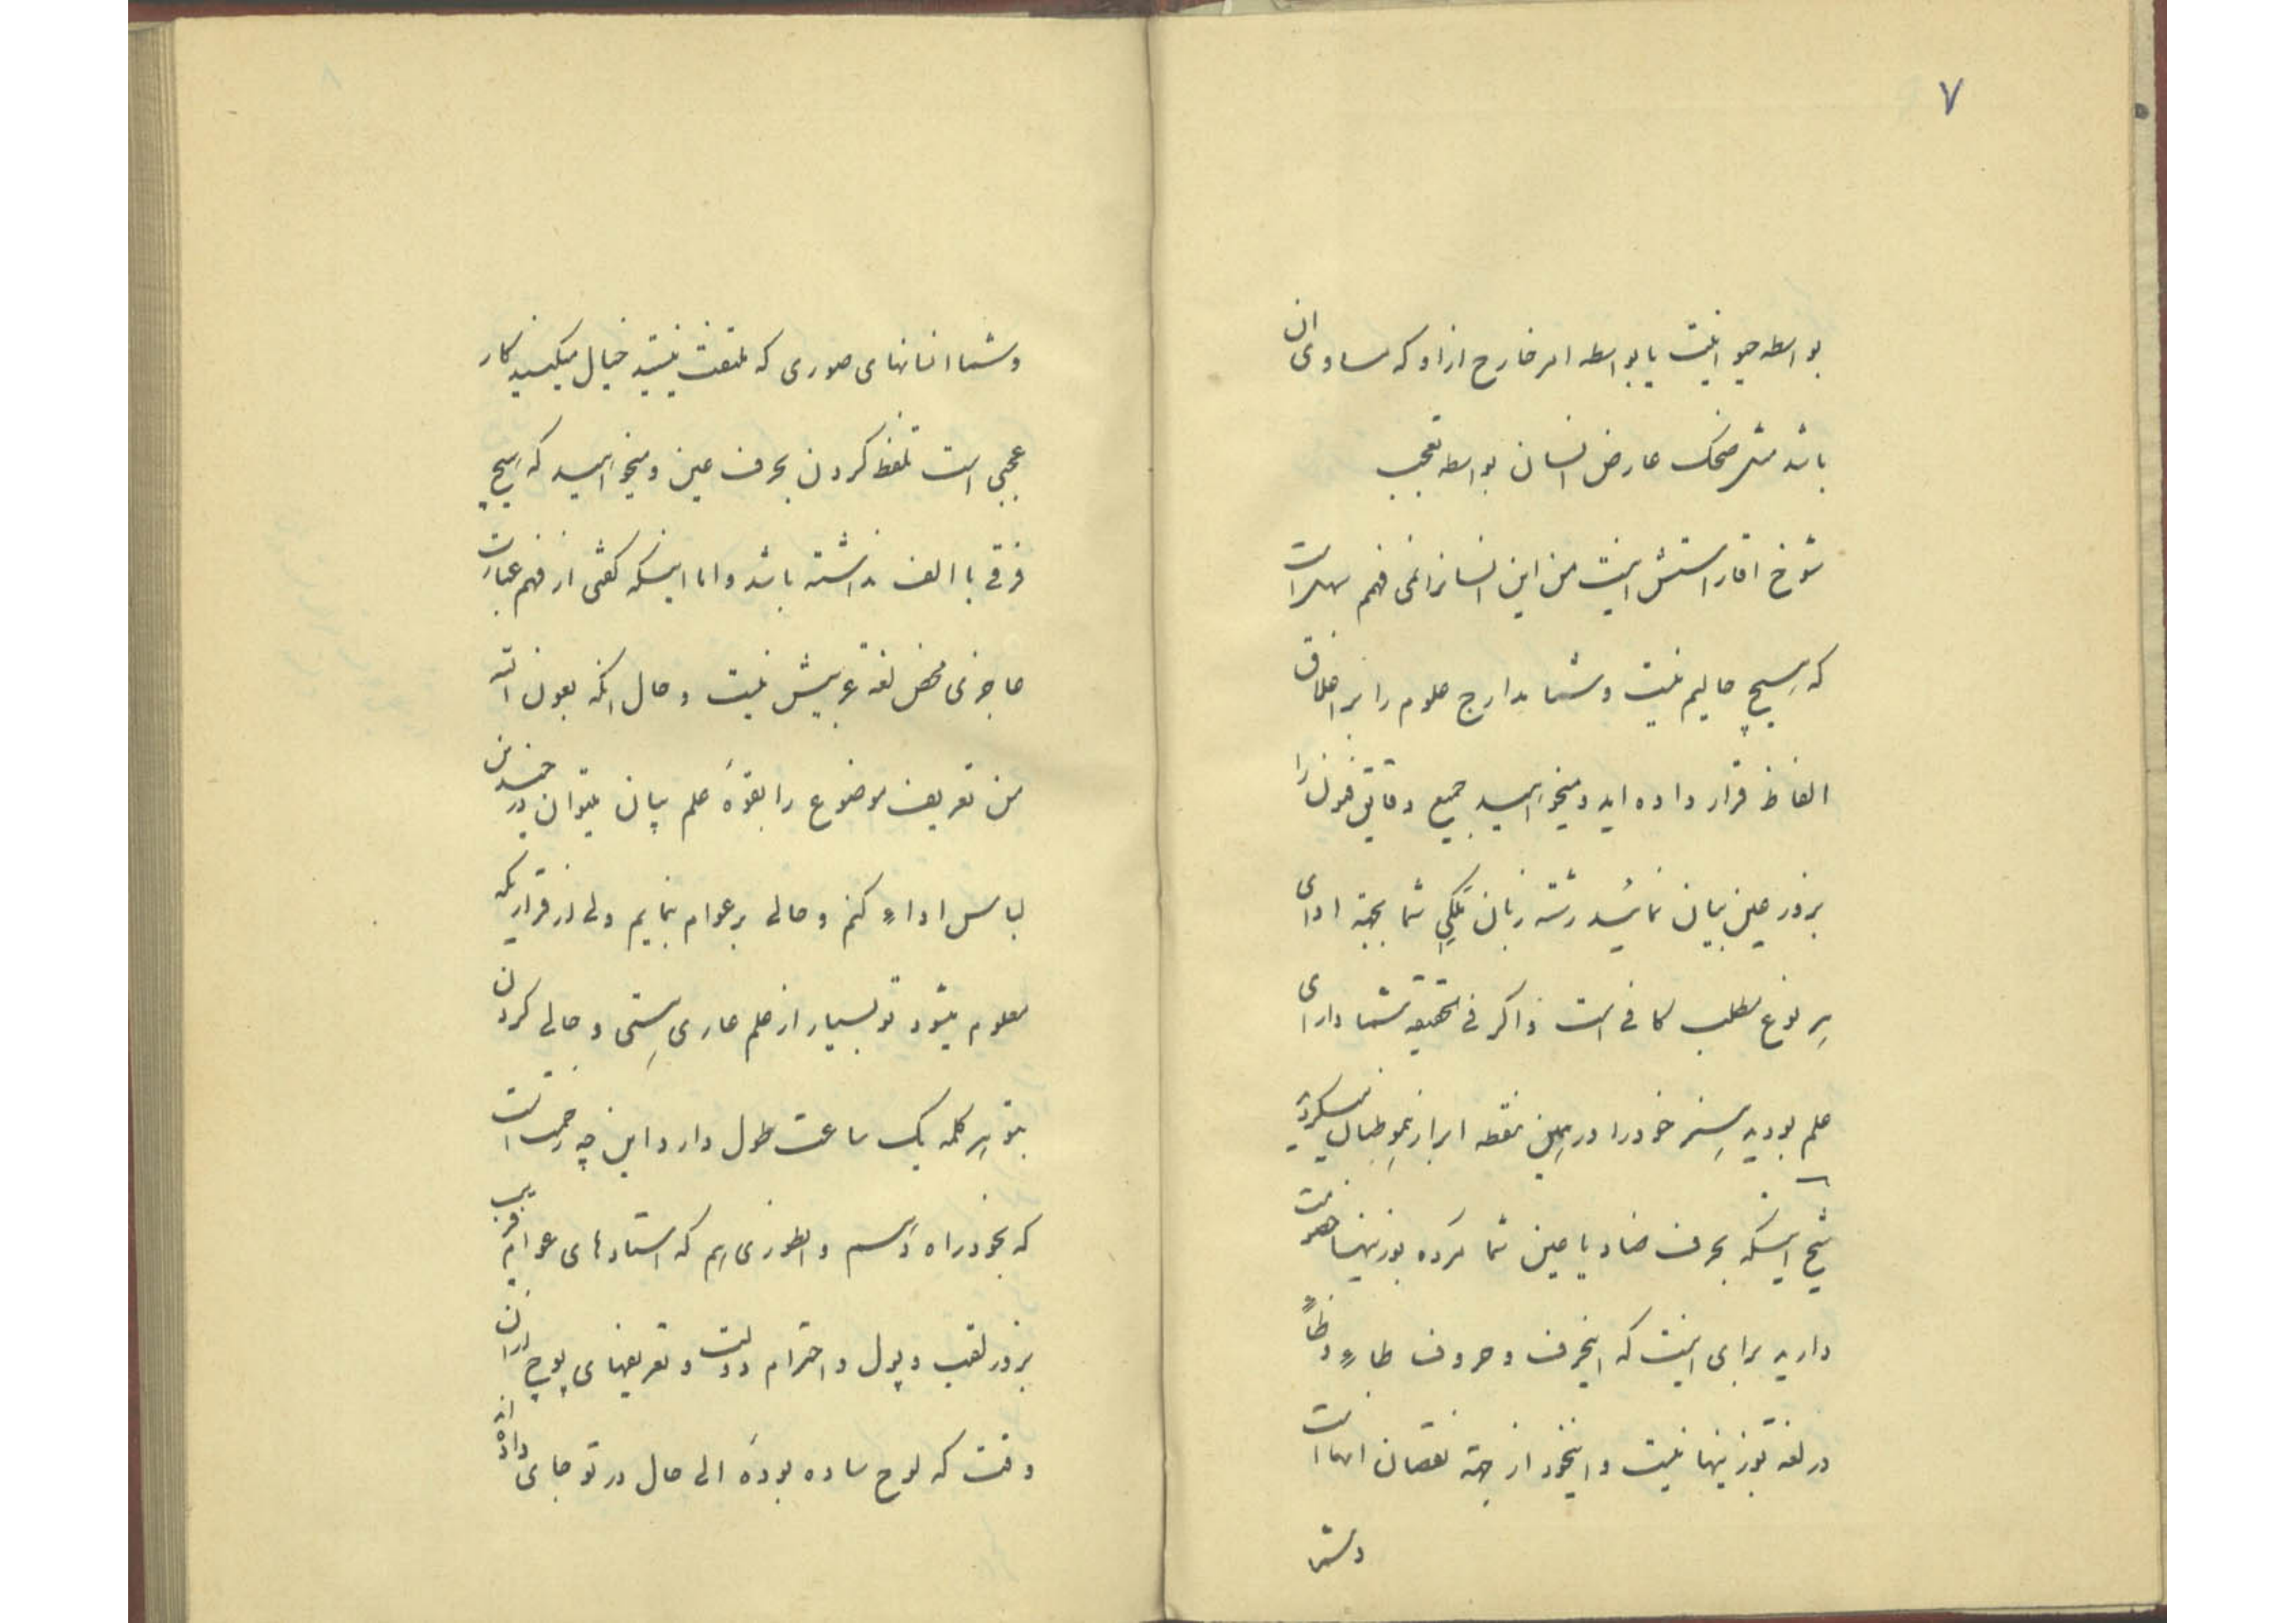 ۷
بواسطه حیوانیت یا بواسطه امر خارج ازاو که مساوی ان
باشد مثل ضحک عارض انسان بواسطه تعجب
شوخ اقا راستش اینست من این انسانرا نمی فهم بهتر است
که هیچ حالیم نیست و شما مدارج علوم را بر اغلاق
الفاظ قرار داده اید و میخواهید جمیع دقایق فنون را
بزور عین بیان نمائید رشته زبان ترکی شما بجهة ادای
هر نوع مطلب کافی است و اگر فی الحقیقه شما دارای
علم بودید هنر خود را در همین نقطه ابراز نمو خیال میکردید
شیخ اینکه بحرف ضاد یا عین شما کرده بوزینها موانست
دارید برای اینست که اینحرف و حروف طاء و ظاء
در لغة بوزینها نیست و اینخود از جهة نقصان انها است
و شما
۸
و شما انسانهای صوری که ملتفت نیستید خیال میکنید کار
عجبی است تلفظ کردن بحرف عین و میخواهید که هیچ
فرقی با الف نداشته باشد و اما اینکه گفتی از فهم عبارت
عاجزی محض لغة عربیش نیست و حال انکه بعون الله
من تعریف موضوع را بقوهٔ علم بیان میتوان در چندین
لباس اداء کنم و حالی بر عوام نمایم ولی از قراریکه
معلوم میشود تو بسیار از علم عاری هستی و حالی کردن
بتو هر کلمه یک ساعت طول دارد این چه زحمت است
که بخود راه دهم و انطوری هم که استادهای عوام فریب
بزور لقب و پول و احترام دولت و تعریفهای پوچ دران
وقت که لوح ساده بودهٔ الی حال در تو جای داده اند